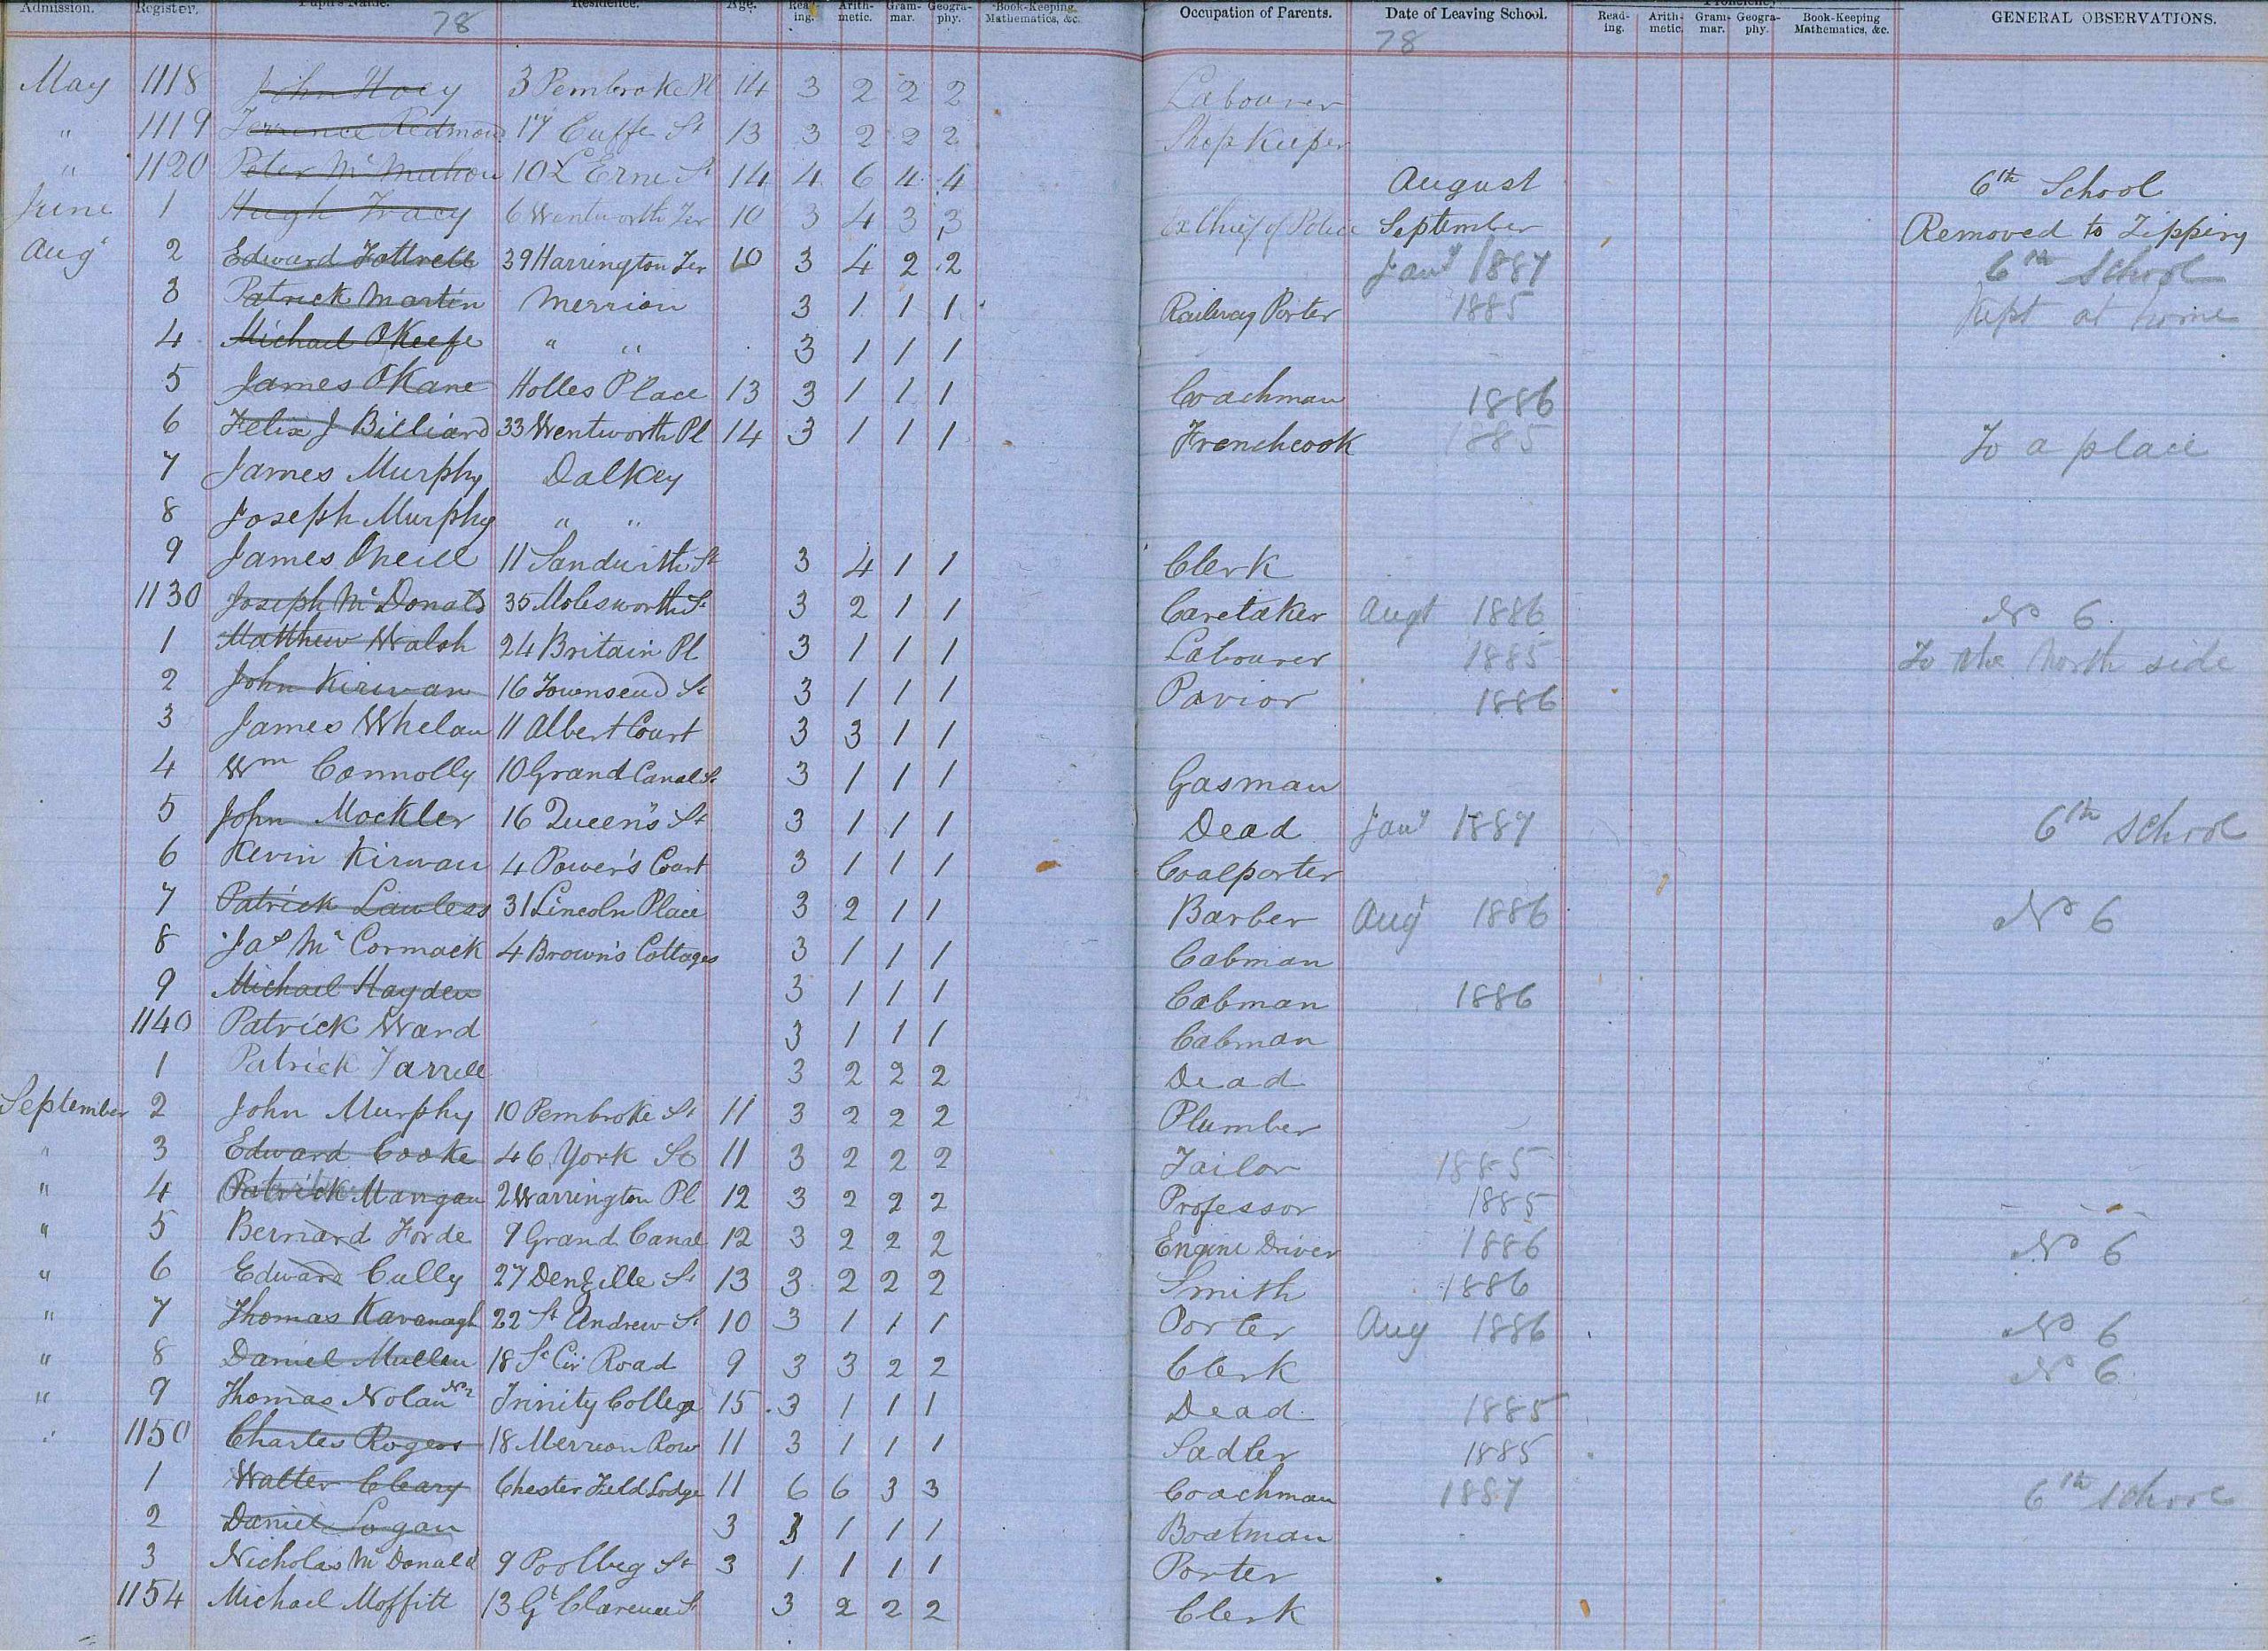 Admission. Register. Pupil's Name. Residence. Age. Read-ing. Arith-metic. Gram-mar. Geogra-phy. Book-Keeping, Mathematics, &c. Occupation of Parents. Date of Leaving School. Proficiency Read-ing. Arith-metic. Gram-mar. Geogra-phy. Book-Keeping Mathematics, &c. GENERAL OBSERVATIONS.
78 78
May 1118 John Hoey 3 Pembroke Pl 14 3 2 2 2 Labourer
" 1119 Terrence Redmond 17 Cuffe St 13 3 2 2 2 Shop Keeper
" 1120 Peter McMahon 10 L Erne St 14 4 6 4 4 August 6th School
June 1 Hugh Tracy 6 Wentworth Ter 10 3 4 3 3 ex Chief of Police September Removed to Tipperary
Aug 2 Edward Fottrell 39 Harrington Ter 10 3 4 2 2 Jany 1887 6th School
3 Patrick Martin Merrion 3 1 1 1 Railway Porter 1885 Kept at home
4 Michael O'Keefe " " 3 1 1 1
5 James O'Kane Holles Place 13 3 1 1 1 Coachman 1886
6 Felix J Billiard 33 Wentworth Pl 14 3 1 1 1 Frenchcook 1885 To a place
7 James Murphy Dalkey
8 Joseph Murphy " "
9 James Oneill 11 Sandwith St 3 4 1 1 Clerk
1130 Joseph McDonald 35 Molesworth St 3 2 1 1 Caretaker Augt 1886 No 6
1 Matthew Walsh 24 Britain Pl 3 1 1 1 Labourer 1885 To the North side
2 John Kirwan 16 Townsend St 3 1 1 1 Pavior 1886
3 James Whelan 11 Albert Court 3 3 1 1
4 Wm Connolly 10 Grand Canal St 3 1 1 1 Gasman
5 John Mockler 16 Queen's St 3 1 1 1 Dead Jany 1887 6th School
6 Kevin Kirwan 4 Power's Court 3 1 1 1 Coalporter
7 Patrick Lawless 31 Lincoln Place 3 2 1 1 Barber Aug 1886 No 6
8 Jas McCormack 4 Brown's Cottages 3 1 1 1 Cabman
9 Michael Hayden 3 1 1 1 Cabman 1886
1140 Patrick Ward 3 1 1 1 Cabman
1 Patrick Farrell 3 2 2 2 Dead
September 2 John Murphy 10 Pembroke St 11 3 2 2 2 Plumber
" 3 Edward Cooke 46 York St 11 3 2 2 2 Tailor 1885
" 4 Patrick Mangan 2 Warrington Pl 12 3 2 2 2 Professor 1885
" 5 Bernard Forde 9 Grand Canal 12 3 2 2 2 Engine Driver 1886 No 6
" 6 Edward Cully 27 Denzille St 13 3 2 2 2 Smith 1886
" 7 Thomas Kavanagh 22 St Andrew St 10 3 1 1 1 Porter Aug 1886 No 6
" 8 Daniel Mullen 18 S Cir Road 9 3 3 2 2 Clerk No 6
" 9 Thomas Nolan No2 Trinity College 15 3 1 1 1 Dead 1885
" 1150 Charles Rogers 18 Merrion Row 11 3 1 1 1 Sadler 1885
1 Walter Cleary Chester Field Lodge 11 6 6 3 3 Coachman 1887 6th School
2 Daniel Logan 3 3 1 1 1 Boatman
3 Nicholas McDonald 9 Poolbeg St 3 1 1 1 1 Porter
1154 Michael Moffitt 13 Gt Clarence St 3 2 2 2 Clerk